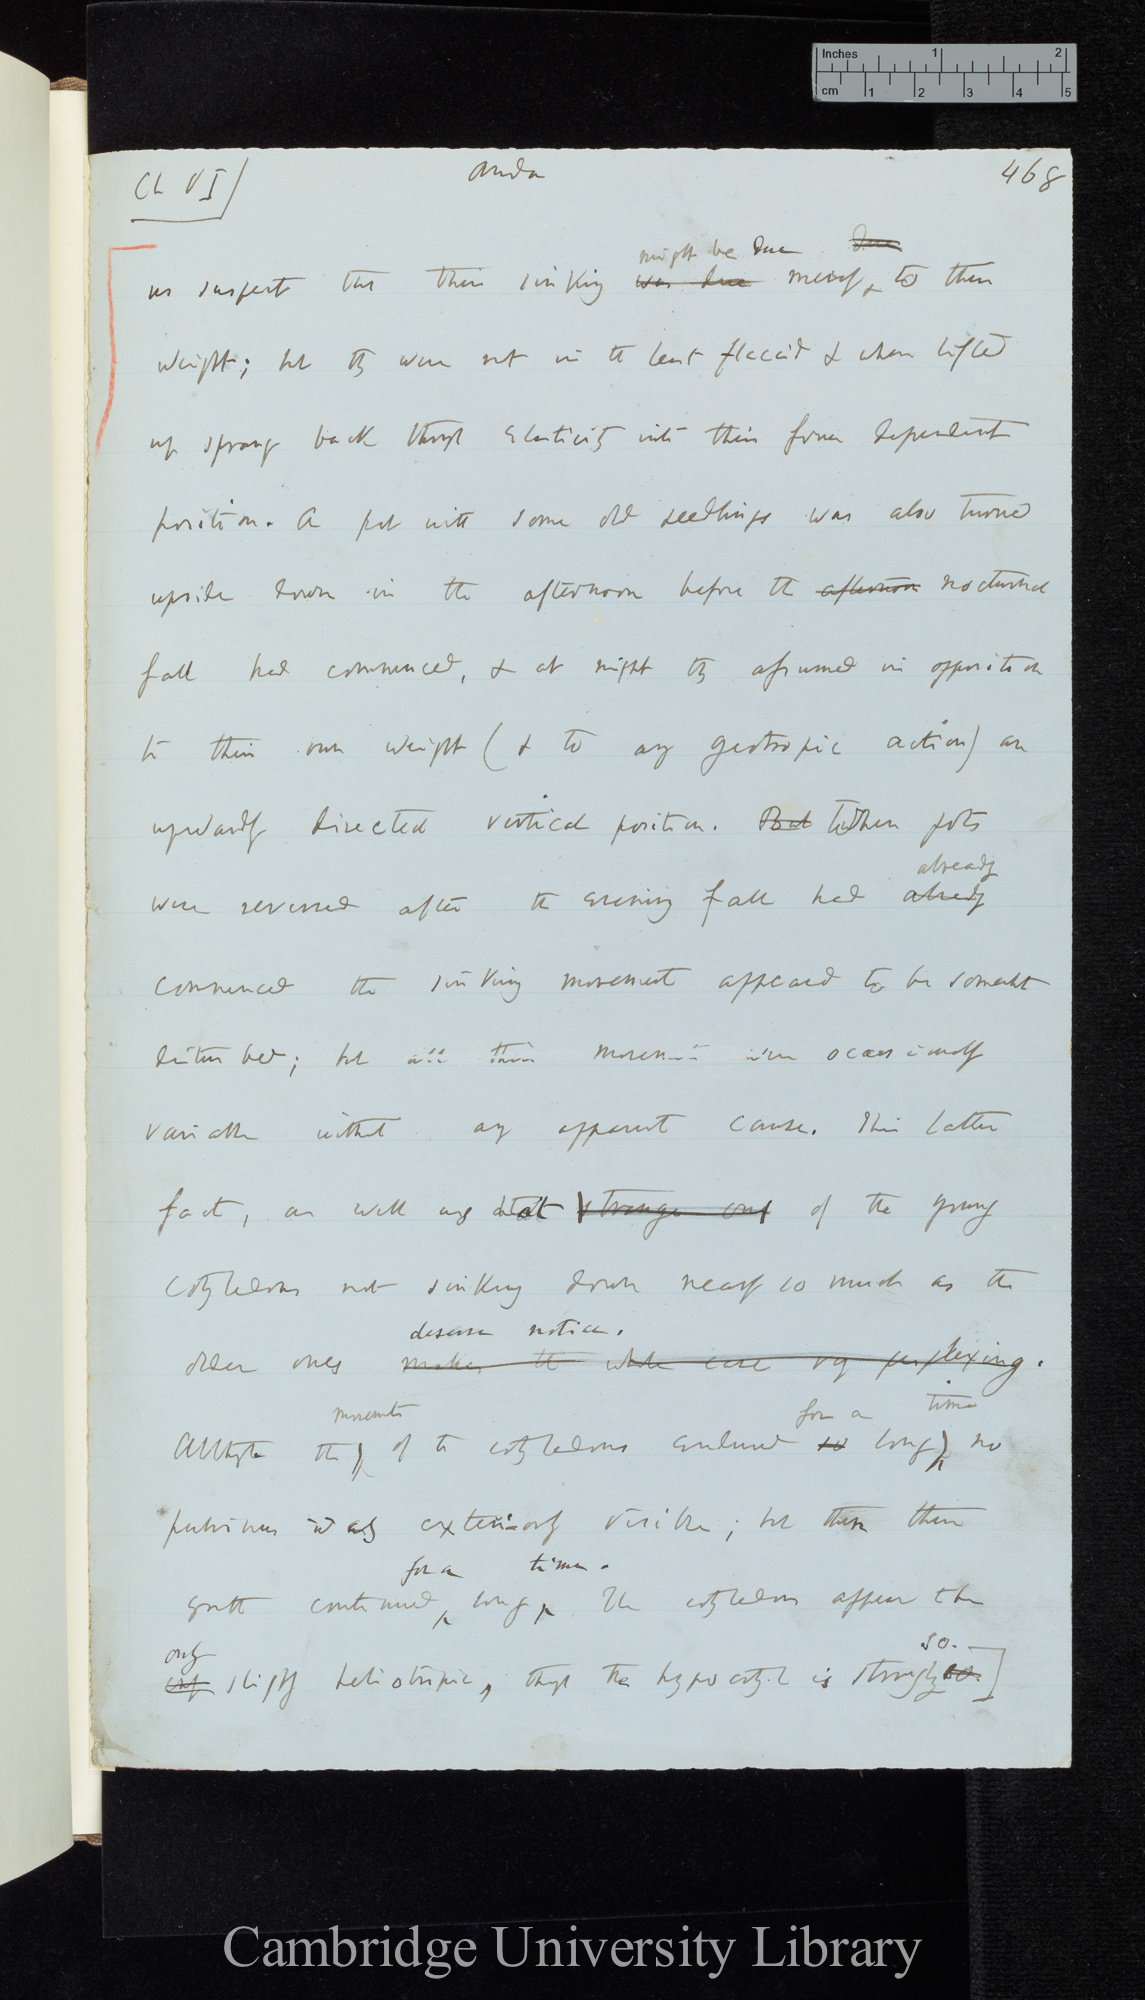 Inches 1 2
cm 1 2 3 4 5
Ch VI
468
might be due due
us suspect that their sinking was due merely to their
weight; but they were not in the least flaccid & when lifted
up sprang back through elasticity into their former dependent
position. A pot with some old seedlings was also turned
upside down in the afternoon before the afternoon nocturnal
fall had commenced, & at night they assumed in opposition
to their own weight (& to any geotropic action) an
upwardly directed vertical position. But When pots
already
were reversed after the evening fall had already
commenced the sinking movement appeared to be somewhat
disturbed; but all their movements were occasionally
variable without any apparent cause. This latter
fact, as well as that strange one of the young
cotyledons not sinking down nearly so much as the
deserve notice.
older ones makes the whole case very perplexing.
movements for a time
Although the of the cotyledons endured so long, no
pulvinus was exteriorly visible; but their
for a time.
growth continued long. The cotyledons appear to be
only so.
only slightly heliotropic, though the hypocotyl is strongly so.
Cambridge University Library